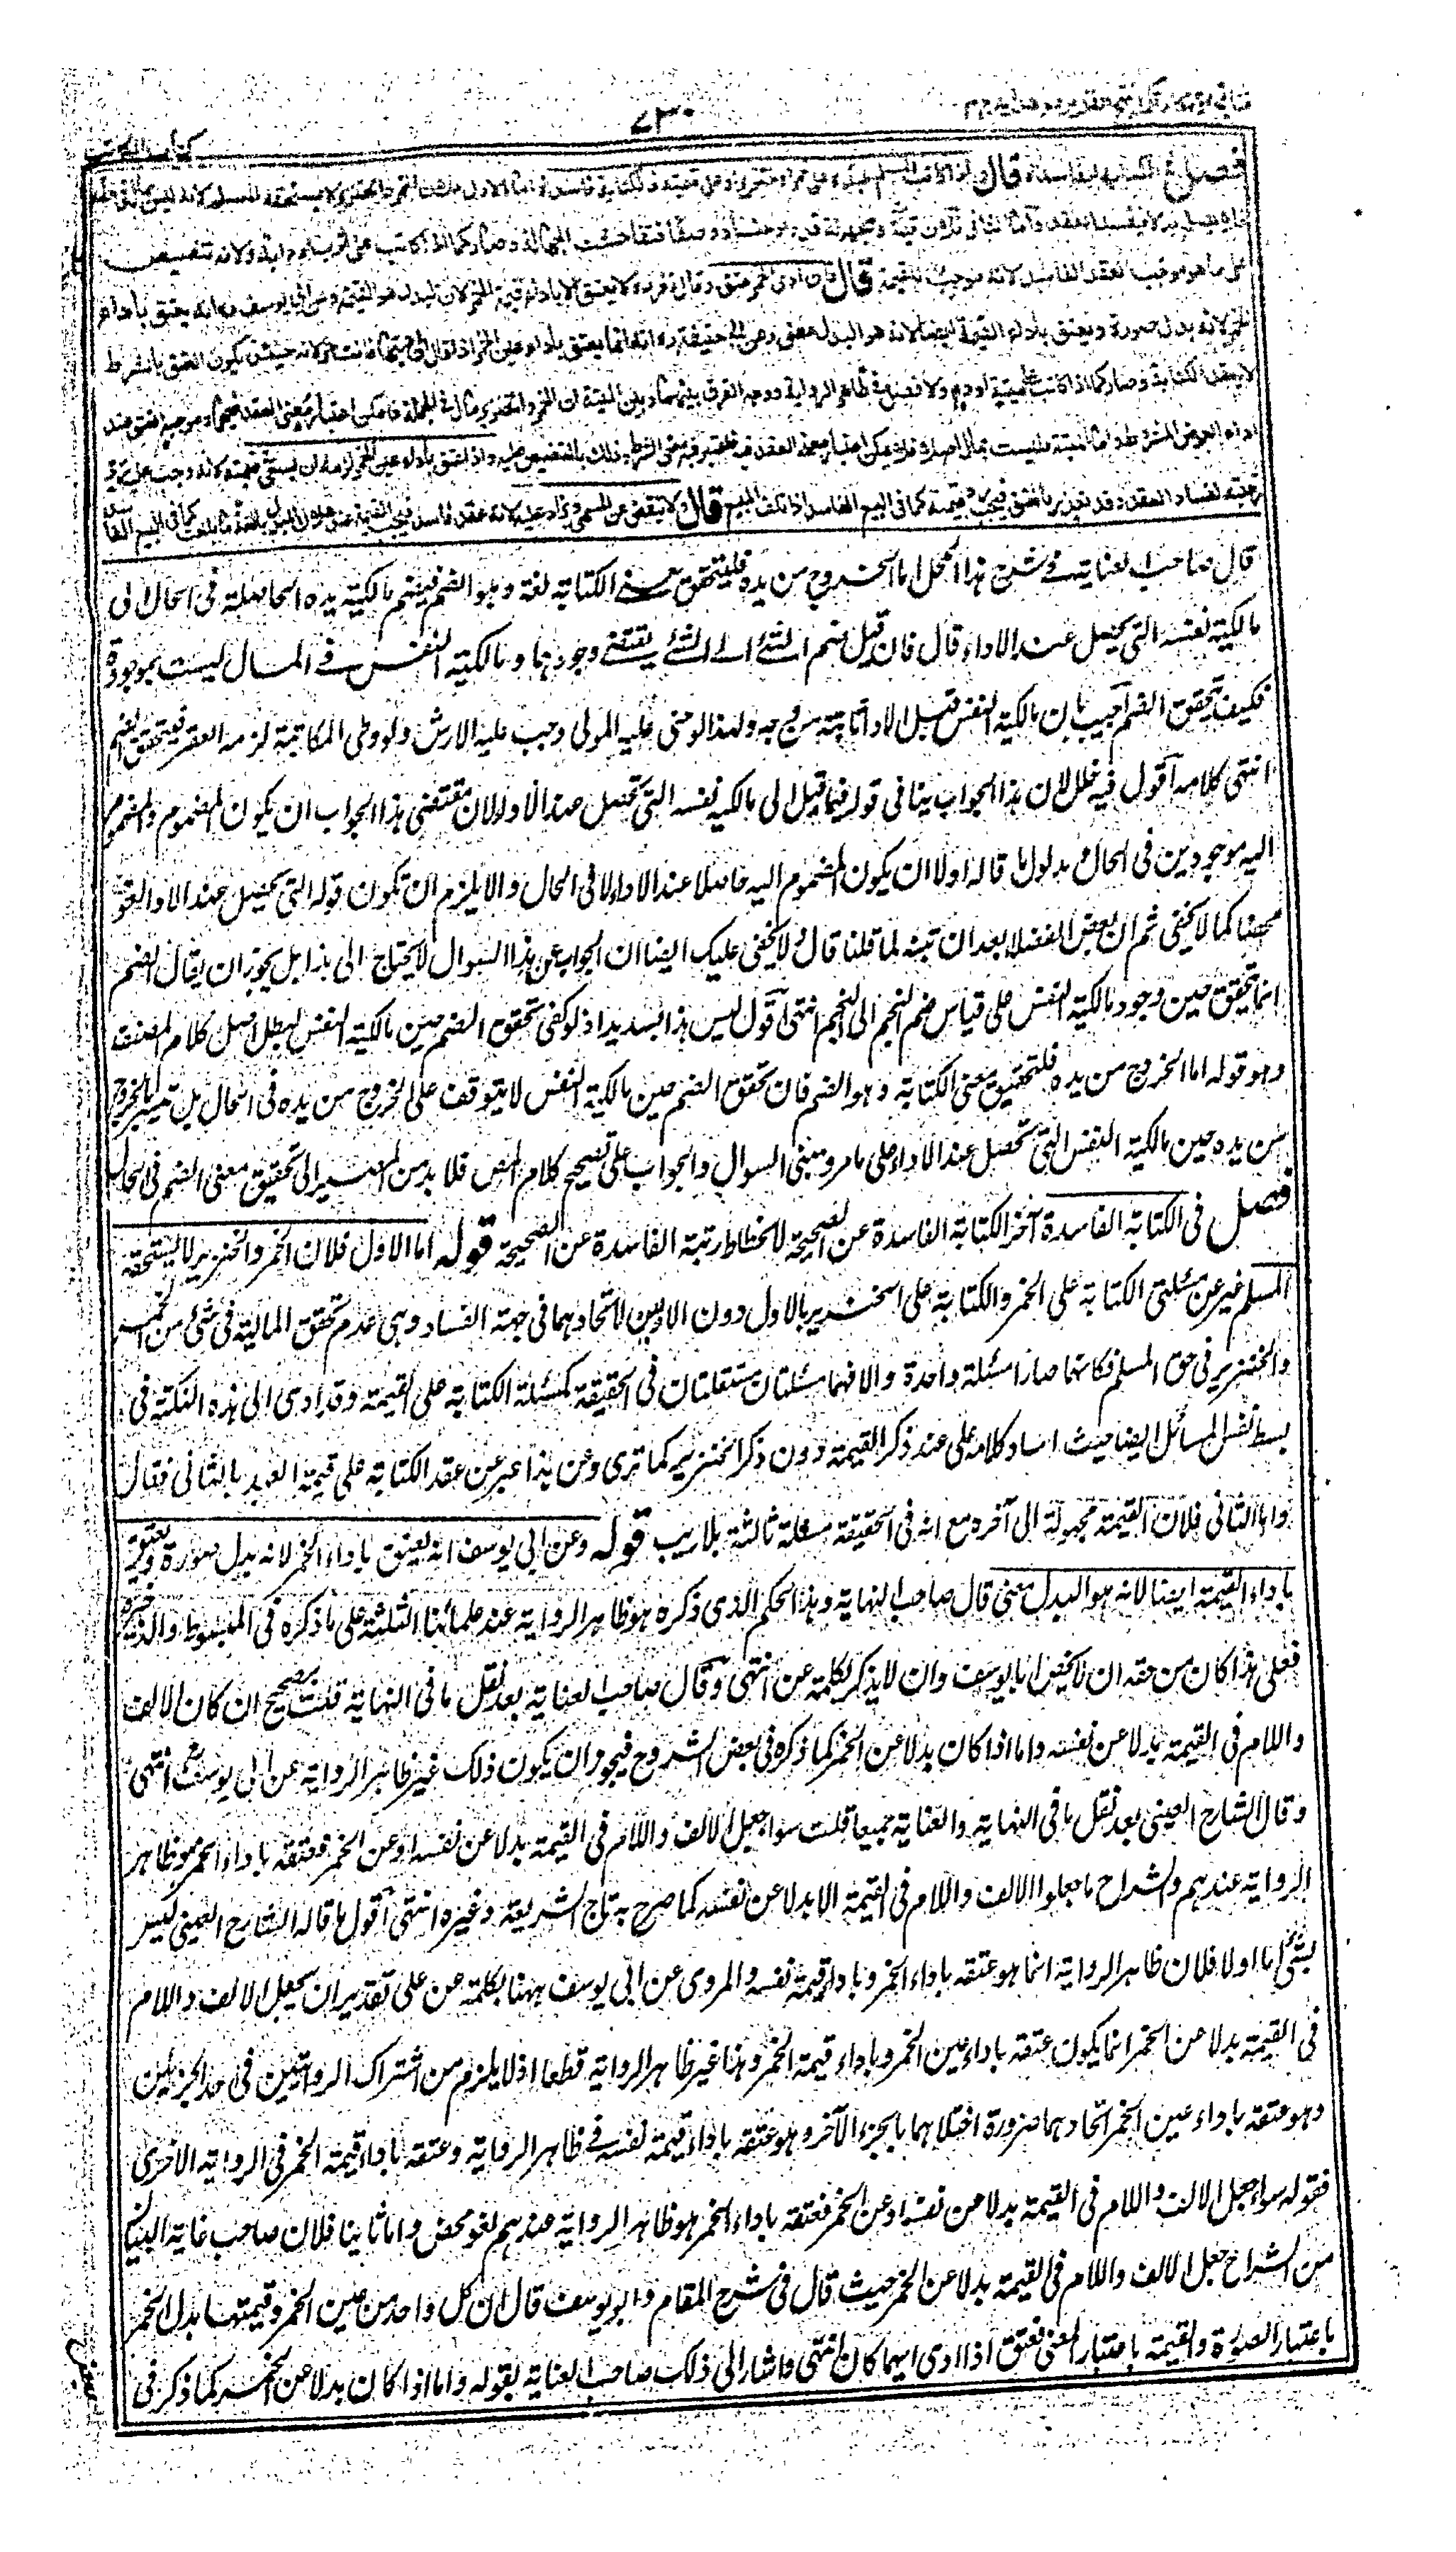 ٧٣٠
فصل في الكتابة الفاسدة قال
على ما هو موجب العقد الفاسد لانه موجب للقيمة قال فان ادى الخمر عتق وقال زفر لا يعتق الا باداء قيمة الخمر لان البدل هو القيمة وعن ابي يوسف انه يعتق باداء
الخمر لانه بدل صورة ويعتق باداء القيمة ايضا لانه هو البدل معنى وعن ابي حنيفة انه انما يعتق باداء عين الخمر اذا قال ان اديتها فانت حر لانه حينئذ يكون العتق بالشرط
لا بعقد الكتابة وصار كما اذا كاتب على ميتة او دم ولا فصل في ظاهر الرواية ووجه الفرق بينهما وبين الميتة ان الخمر والخنزير مال في الجملة فامكن اعتبار معنى العقد فيهما وموجبه العتق عند
اداء العوض المشروط واما الميتة فليست بمال اصلا فلا يمكن اعتبار معنى العقد فيه فاعتبر فيه معنى الشرط وذلك بالتنصيص عليه واذا عتق باداء عين الخمر لزمه ان يسعى في قيمته لانه وجب عليه رد
رقبته لفساد العقد وقد تعذر بالعتق فيجب رد قيمته كما في البيع الفاسد اذا تلف المبيع قال ولا ينقص عن المسمى ويزاد عليه لانه عقد فاسد فيجب القيمة عند هلاك المبدل بالغة ما بلغت كما في البيع الفاسد
قال صاحب العناية في شرح هذا المحل اما الخروج من يده فلتحقق معنى الكتابة لغة وهو الضم فيضم مالكية يده الحاصلة في الحال الى
مالكية نفسه التي تحصل عند الاداء قال فان قيل ضم الشئ الى الشئ يقتضي وجودهما ومالكية النفس في الحال ليست بموجودة
فكيف تحقق الضم اجيب بان مالكية النفس قبل الاداء ثابتة من وجه ولهذا لو جنى عليه المولى وجب عليه الارش ولو وطى المكاتبة لزمه العقر فيتحقق الضم
انتهى كلامه اقول فيه خلل لان هذا الجواب ينافي قوله فيما قبل الى مالكية نفسه التي تحصل عند الاداء لان مقتضى هذا الجواب ان يكون المضموم والمضموم
اليه موجودين في الحال ومدلول ما قاله اولا ان يكون المضموم اليه حاصلا عند الاداء لا في الحال والا يلزم ان تكون قوله التي تحصل عند الاداء لغوا
محضا كما لا يخفى ثم ان بعض الفضلاء بعد ان تنبه لما قلنا قال ولا يخفى عليك ايضا ان الجواب عن هذا السوال لا يحتاج الى هذا بل يجوز ان يقال الضم
انما يتحقق حين وجود مالكية النفس على قياس ضم النجم الى النجم انتهى اقول ليس هذا بسديد اذ لو كفى تحقق الضم حين مالكية النفس لبطل اصل كلام المصنف
وهو قوله اما الخروج من يده فلتحقيق معنى الكتابة وهو الضم فان تحقق الضم حين مالكية النفس لا يتوقف على الخروج من يده في الحال بل تيسر بالخروج
من يده حين مالكية النفس التي تحصل عند الاداء على ما مر ومبنى السوال والجواب على تصحيح كلام المص فلا بد من المصير الى تحقيق معنى الضم في الحال
فصل في الكتابة الفاسدة آخر الكتابة الفاسدة عن الصحيحة لانحطاط رتبة الفاسدة عن الصحيحة قوله اما الاول فلان الخمر والخنزير لا يستحقه
المسلم غير عن مسئلتي الكتابة على الخمر والكتابة على الخنزير بالاول دون الاولين لاتحادهما في جهة الفساد وهى عدم تحقق المالية في شئ من الخمر
والخنزير في حق المسلم فكانهما صارا مسئلة واحدة والا فهما مسئلتان مستقلتان في الحقيقة كمسئلة الكتابة على القيمة وقد اومى الى هذه النكتة في
بسط نفس المسائل ايضا حيث اعاد كلمة على عند ذكر القيمة دون ذكر الخنزير كما ترى وعن هذا عبر عن عقد الكتابة على قيمة العبد بالثاني فقال
واما الثاني فلان القيمة مجهولة الى آخره مع انه في الحقيقة مسئلة ثالثة بلا ريب قوله وعن ابي يوسف انه يعتق باداء الخمر لانه بدل صورة ويعتق
باداء القيمة ايضا لانه هو البدل معنى قال صاحب النهاية وهذا الحكم الذي ذكره هو ظاهر الرواية عند علمائنا الثلثة على ما ذكره في المبسوط والذخيرة
فعلى هذا كان من حقه ان لا يخص ابا يوسف وان لا يذكر بكلمة عن انتهى وقال صاحب العناية بعد نقل ما في النهاية قلت صحيح ان كان الالف
واللام في القيمة بدلا عن نفسه واما اذا كان بدلا عن الخمر كما ذكره في بعض الشروح فيجوز ان يكون ذلك غير ظاهر الرواية عن ابي يوسف انتهى
وقال الشارح العيني بعد نقل ما في النهاية والعناية جميعا قلت سواء جعل الالف واللام في القيمة بدلا عن نفسه او عن الخمر فعتقه باداء الخمر هو ظاهر
الرواية عندهم والشراح ما جعلوا الالف واللام في القيمة الا بدلا عن نفسه كما صرح به تاج الشريعة وغيره انتهى اقول ما قاله الشارح العيني ليس
بشئ اما اولا فلان ظاهر الرواية انما هو عتقه باداء الخمر وباداء قيمة نفسه والمروى عن ابي يوسف ههنا بكلمة عن على تقدير ان يجعل الالف واللام
في القيمة بدلا عن الخمر انما يكون عتقه باداء عين الخمر وباداء قيمة الخمر وهذا غير ظاهر الرواية قطعا اذ لا يلزم من اشتراك الروايتين في احد الجزئين
وهو عتقه باداء عين الخمر اتحادهما ضرورة اختلافهما بالجزء الآخر وهو عتقه باداء قيمة نفسه في ظاهر الرواية وعتقه باداء قيمة الخمر في الرواية الاخرى
فقوله سواء جعل الالف واللام في القيمة بدلا عن نفسه او عن الخمر فعتقه باداء الخمر هو ظاهر الرواية عندهم لغو محض واما ثانيا فلان صاحب غاية البيان
من الشراح جعل الالف واللام في القيمة بدلا عن الخمر حيث قال في شرح المقام وابو يوسف قال ان كل واحد من عين الخمر وقيمتها بدل الخمر
باعتبار الصورة والقيمة باعتبار المعنى فعتق اذا ادى ايهما كان انتهى واشار الى ذلك صاحب العناية بقوله واما اذا كان بدلا عن الخمر كما ذكر في